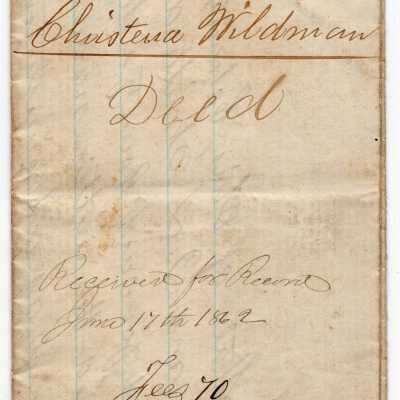 Christena Wildman
Deed
Received for Record
June 17th 1862
Fees 70